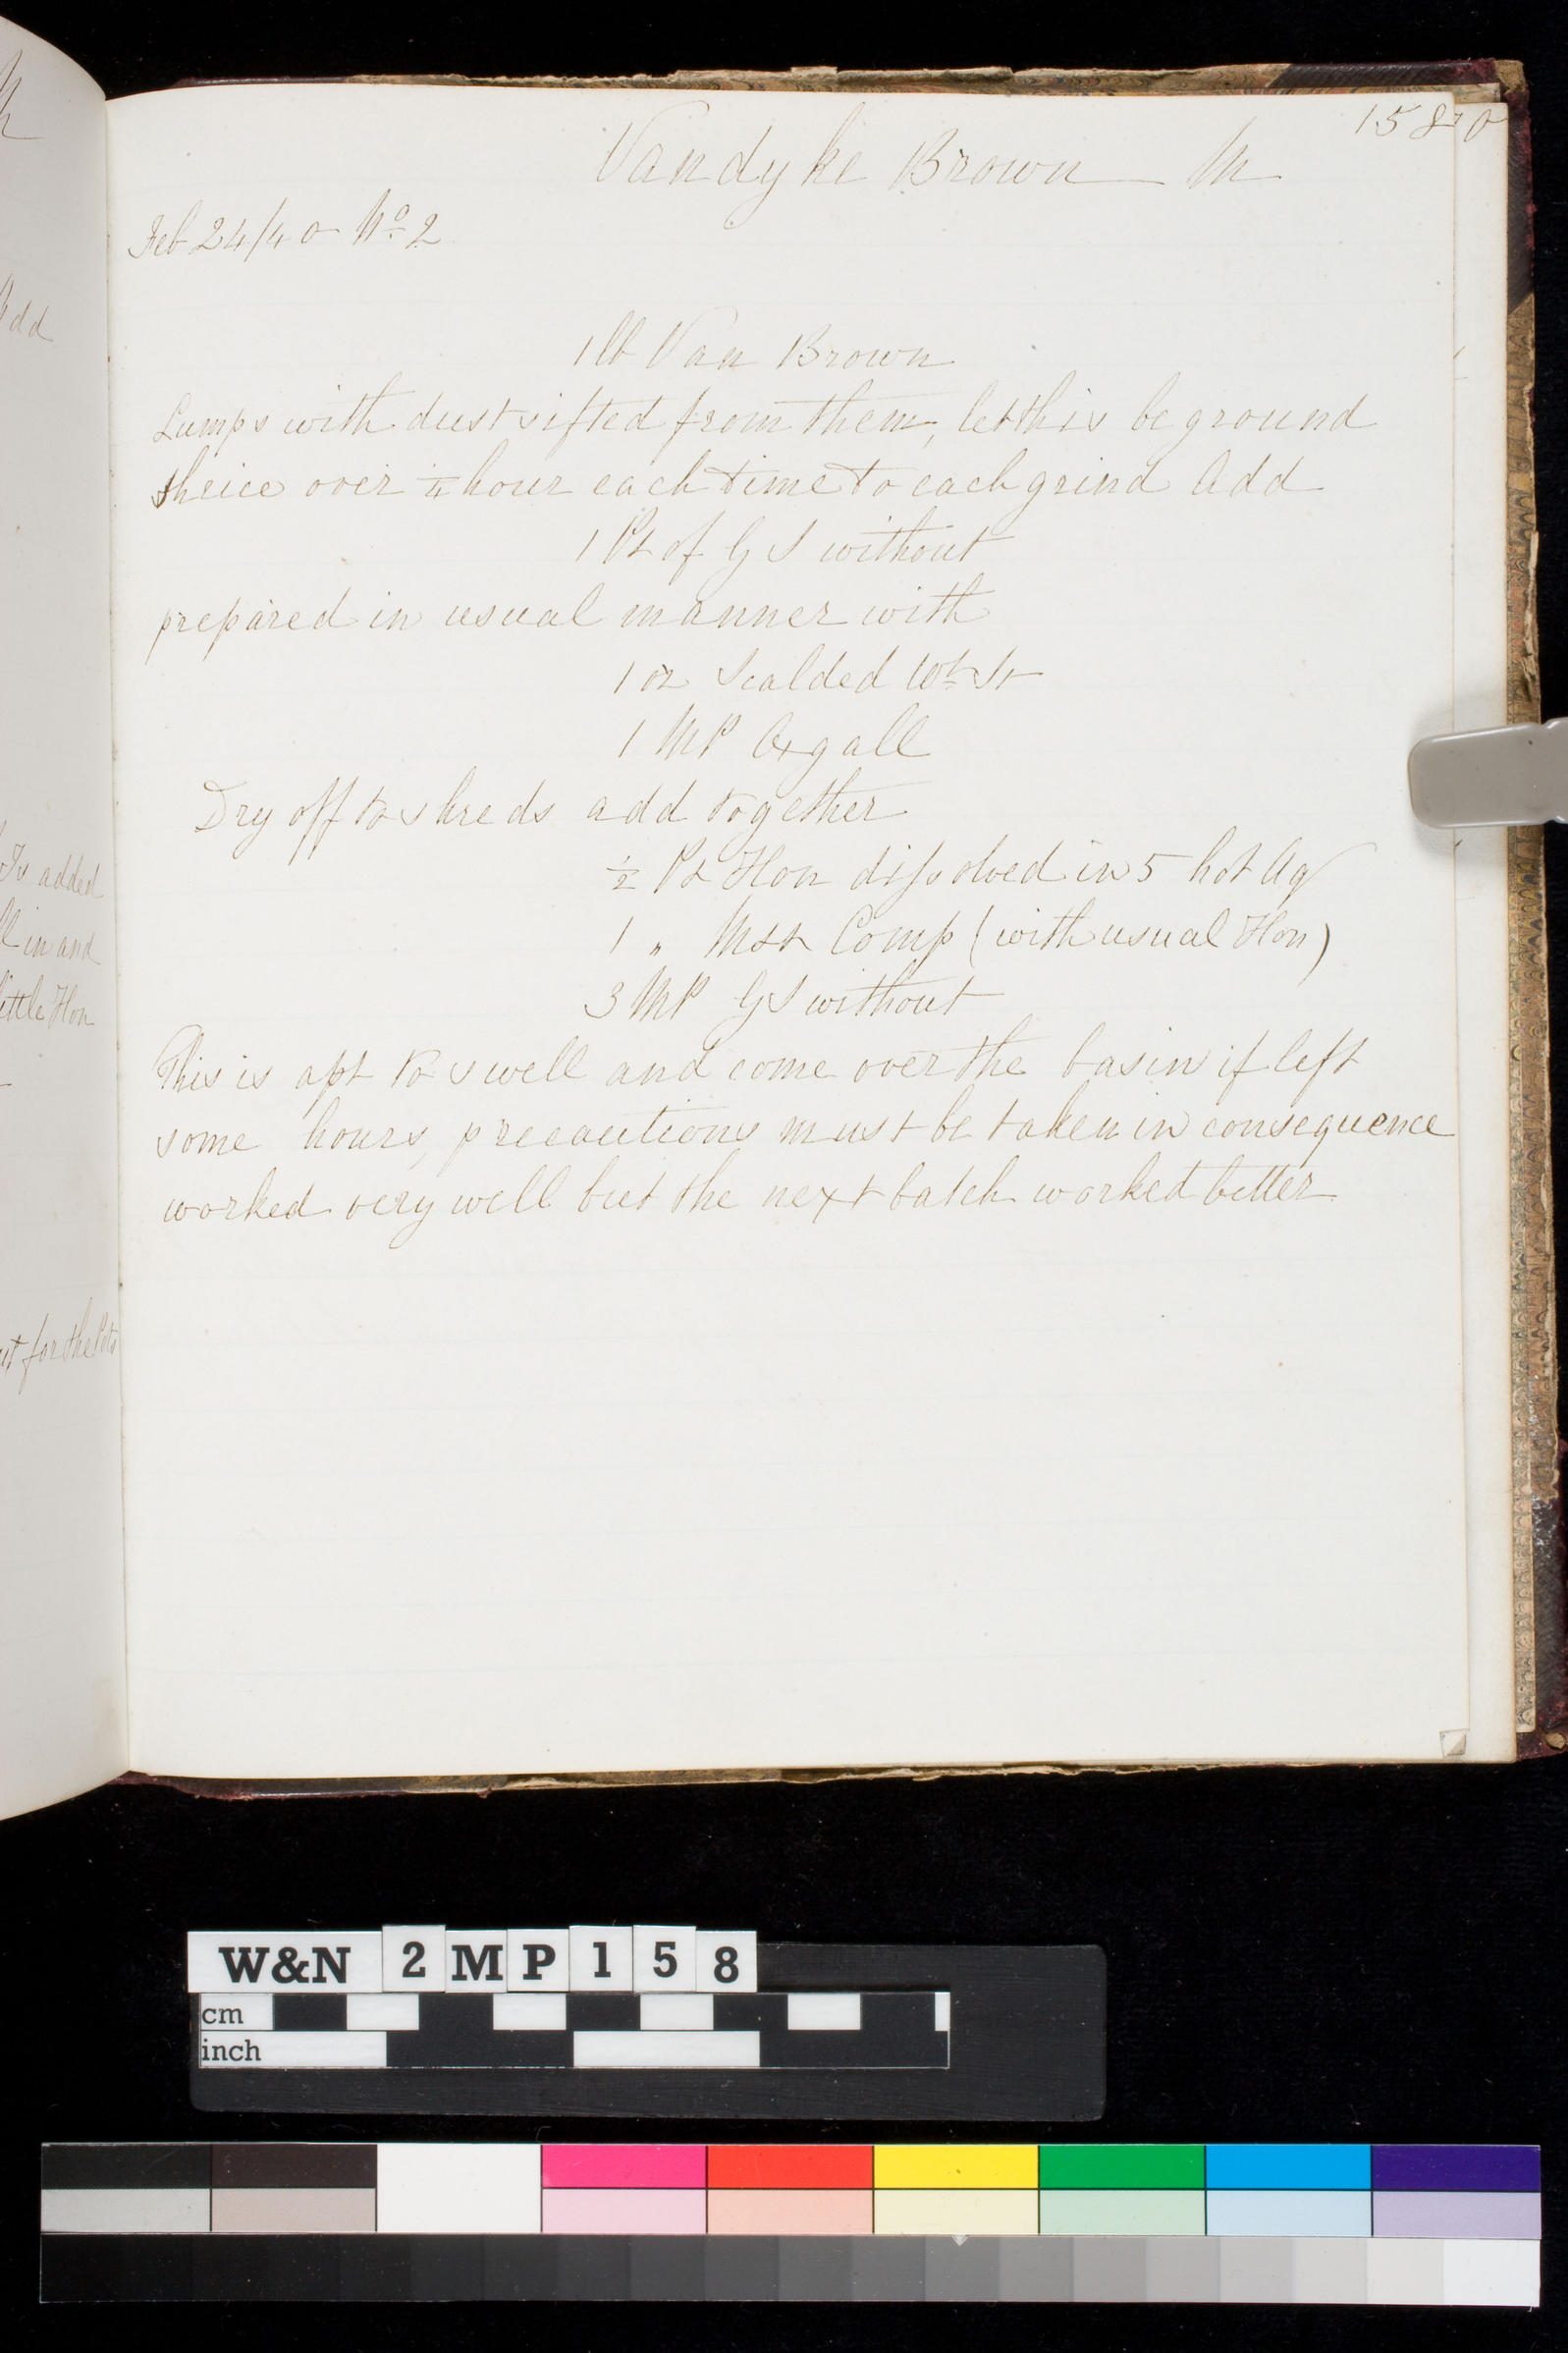 158
Vandyke Brown M
Feb 24/40 No 2
1 lb Van Brown
Lumps with dust sifted from them, let this be ground
theice over 1/4 hour each time to each grind Add
1 Pt of GS without
prepared in usual manner with
1 oz Scalded Wt St
1 MP Oxgall
Dry off to shreds add together
1/2 Pt Hon dissolved in 5 hot Aq
1 " Comp (with usual Hon)
3 MP GS without
This is apt to swell and come over the basin if left
some hours, precautions must be taken in consequence
worked very well but the next batch worked better
dd
Is added
ll in and
ittle Hon
for the Pots
W&N 2MP158
cm
inch